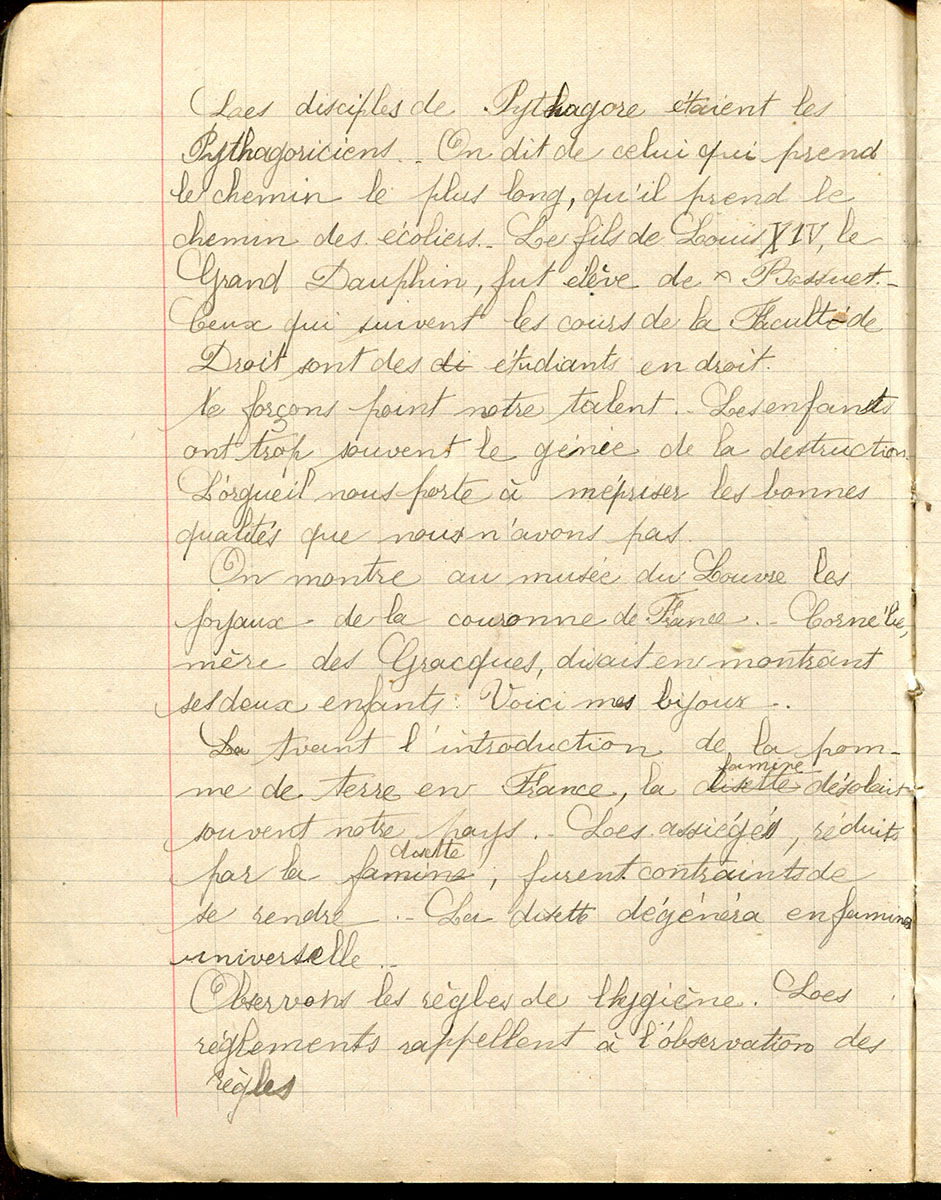 Les disciples de Pythagore étaient les
Pythagoriciens. _ On dit de celui qui prend
le chemin le plus long, qu'il prend le
chemin des écoliers. _ Le fils de Louis XIV, le
Grand Dauphin, fut élève de Bossuet. _
Ceux qui suivent les cours de la Faculté de
Droit sont des di étudiants en droit.
Ne forçons point notre talent. _ Les enfants
ont trop souvent le génie de la destruction.
L'orgueil nous porte à mépriser les bonnes
qualités que nous n'avons pas.
On montre au musée du Louvre les
joyaux de la couronne de France. _ Cornélie,
mère des Gracques, disait en montrant
ses deux enfants : Voici mes bijoux _.
La Avant l'introduction de la pom-
famine
me de terre en France, la disette désolait
souvent notre pays. _ Les assiégés, réduits
disette
par la famine, furent contraints de
se rendre. _ La disette dégénéra en famine
universelle. _
Observons les règles de l'hygiène. Les
réglements rappellent à l'observation des
règles